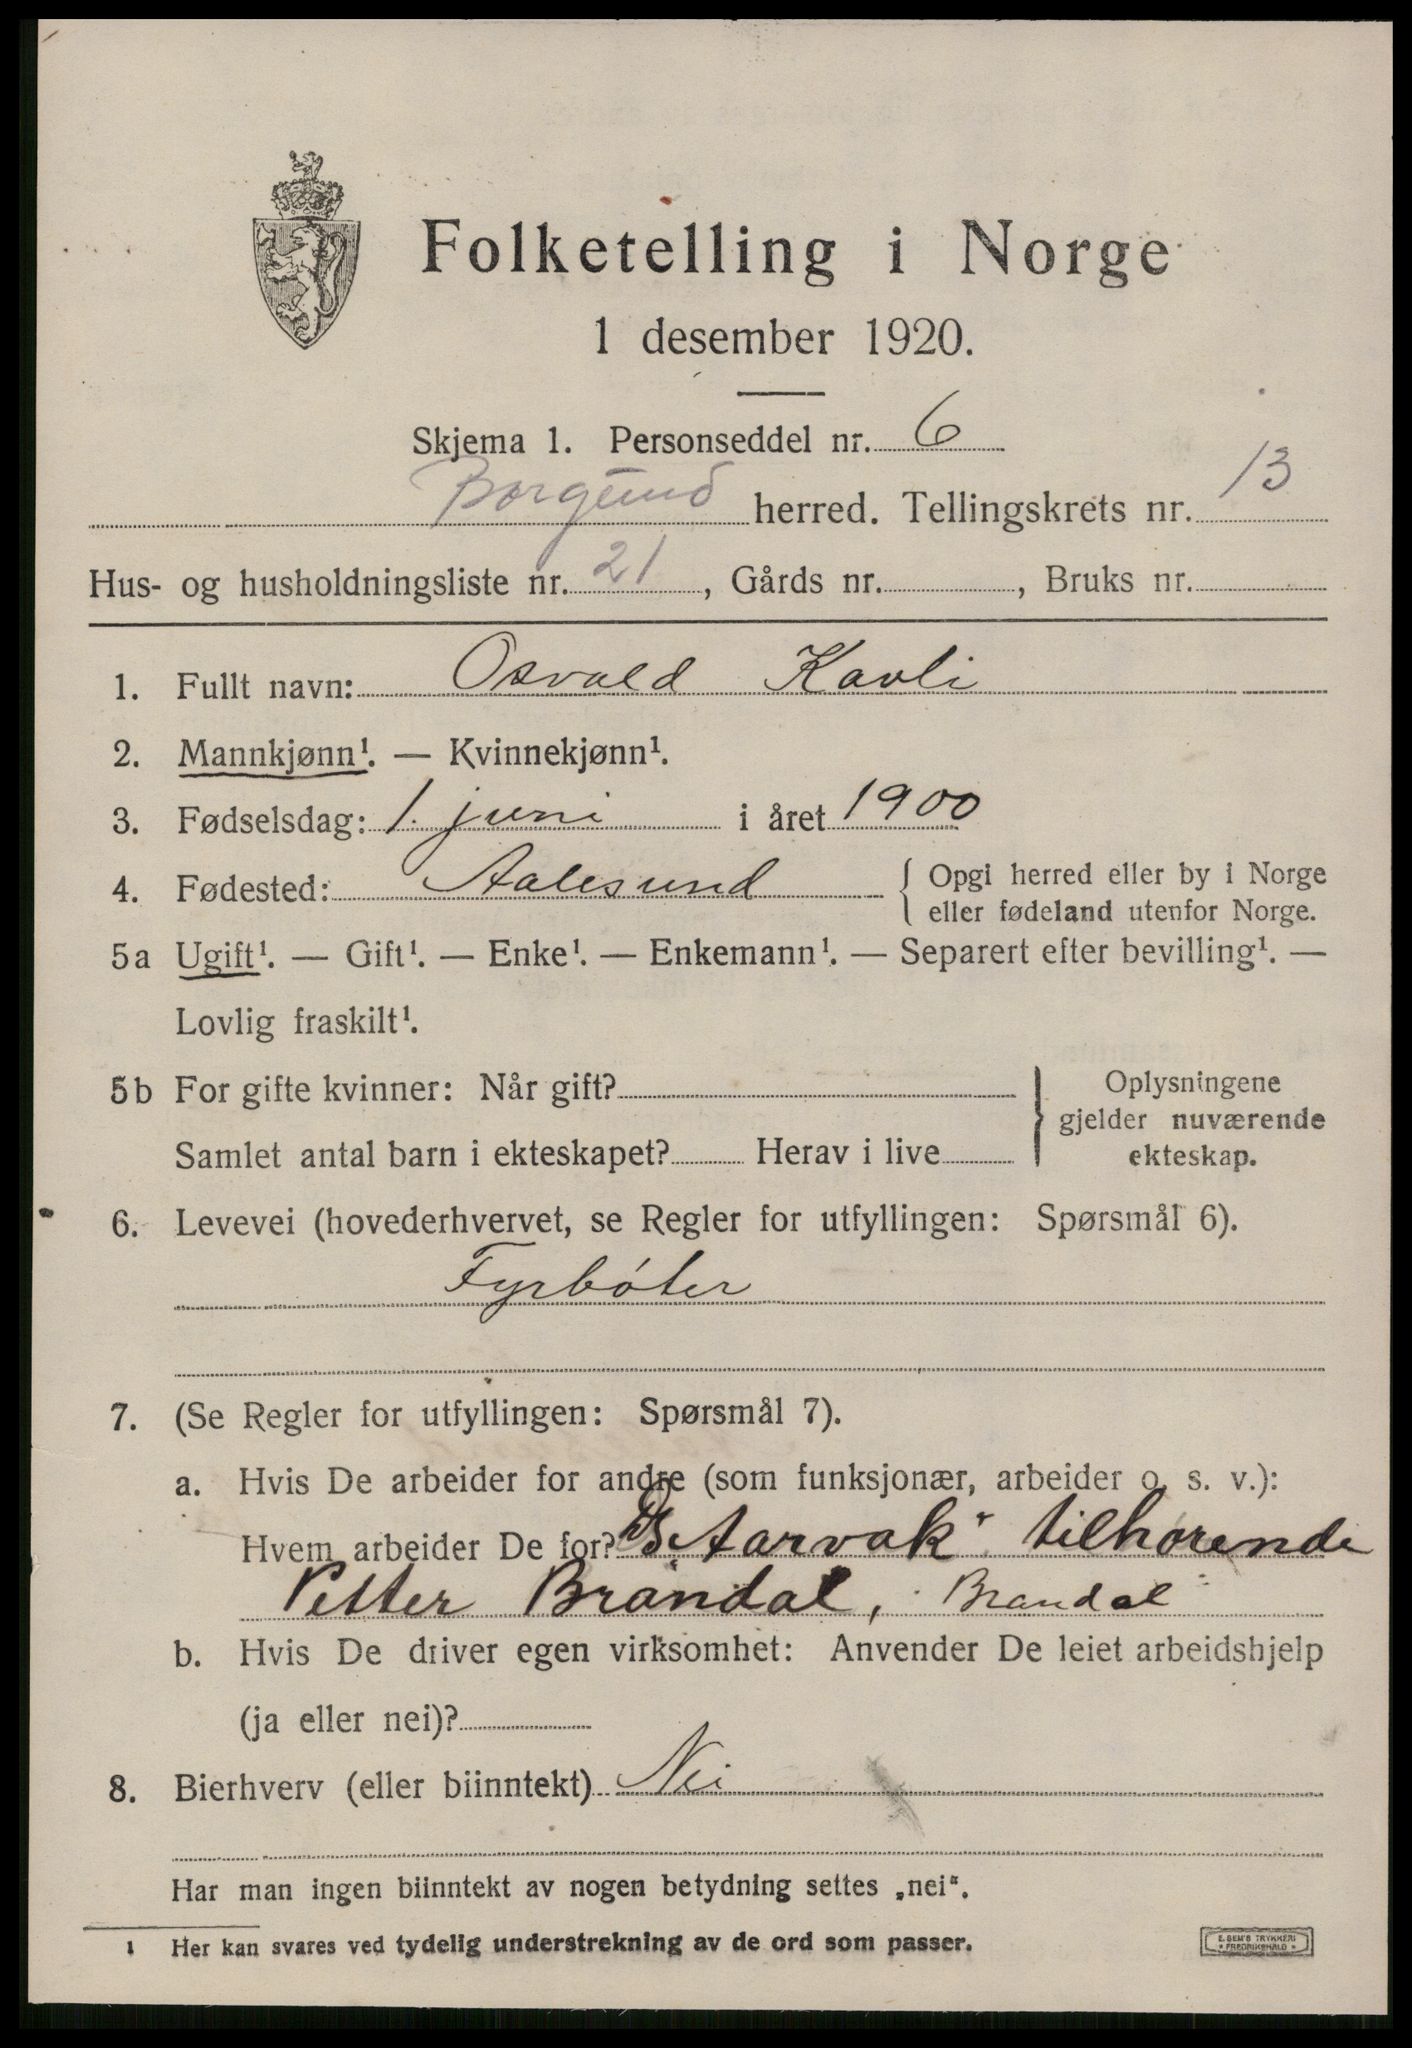 Folketelling i Norge
1 desember 1920.
Skjema 1. Personseddel nr. 6
Borgund herred. Tellingskrets nr. 13
Hus- og husholdningsliste nr. 21, Gårds nr. , Bruks nr.
1. Fullt navn: Osvald Kavli
2. Mannkjønn¹. — Kvinnekjønn¹.
3. Fødselsdag: 1. juni i året 1900
4. Fødested: Aalesund { Opgi herred eller by i Norge
eller fødeland utenfor Norge.
5a Ugift¹. — Gift¹. — Enke¹. — Enkemann¹. — Separert efter bevilling¹. —
Lovlig fraskilt¹.
5b For gifte kvinner: Når gift? } Oplysningene
gjelder nuværende
Samlet antal barn i ekteskapet? Herav i live ekteskap.
6. Levevei (hovederhvervet, se Regler for utfyllingen: Spørsmål 6).
Fyrbóter
7. (Se Regler for utfyllingen: Spørsmål 7).
a. Hvis De arbeider for andre (som funksjonær, arbeider o. s. v.):
Hvem arbeider De for? D/S „Aarvak" tilhørende
Petter Brandal, Brandal
b. Hvis De driver egen virksomhet: Anvender De leiet arbeidshjelp
(ja eller nei)?
8. Bierhverv (eller biinntekt) Nei
Har man ingen biinntekt av nogen betydning settes „nei".
1 Her kan svares ved tydelig understrekning av de ord som passer.
E. SEM'S TRYKKERI
* FREDRIKSHALD *